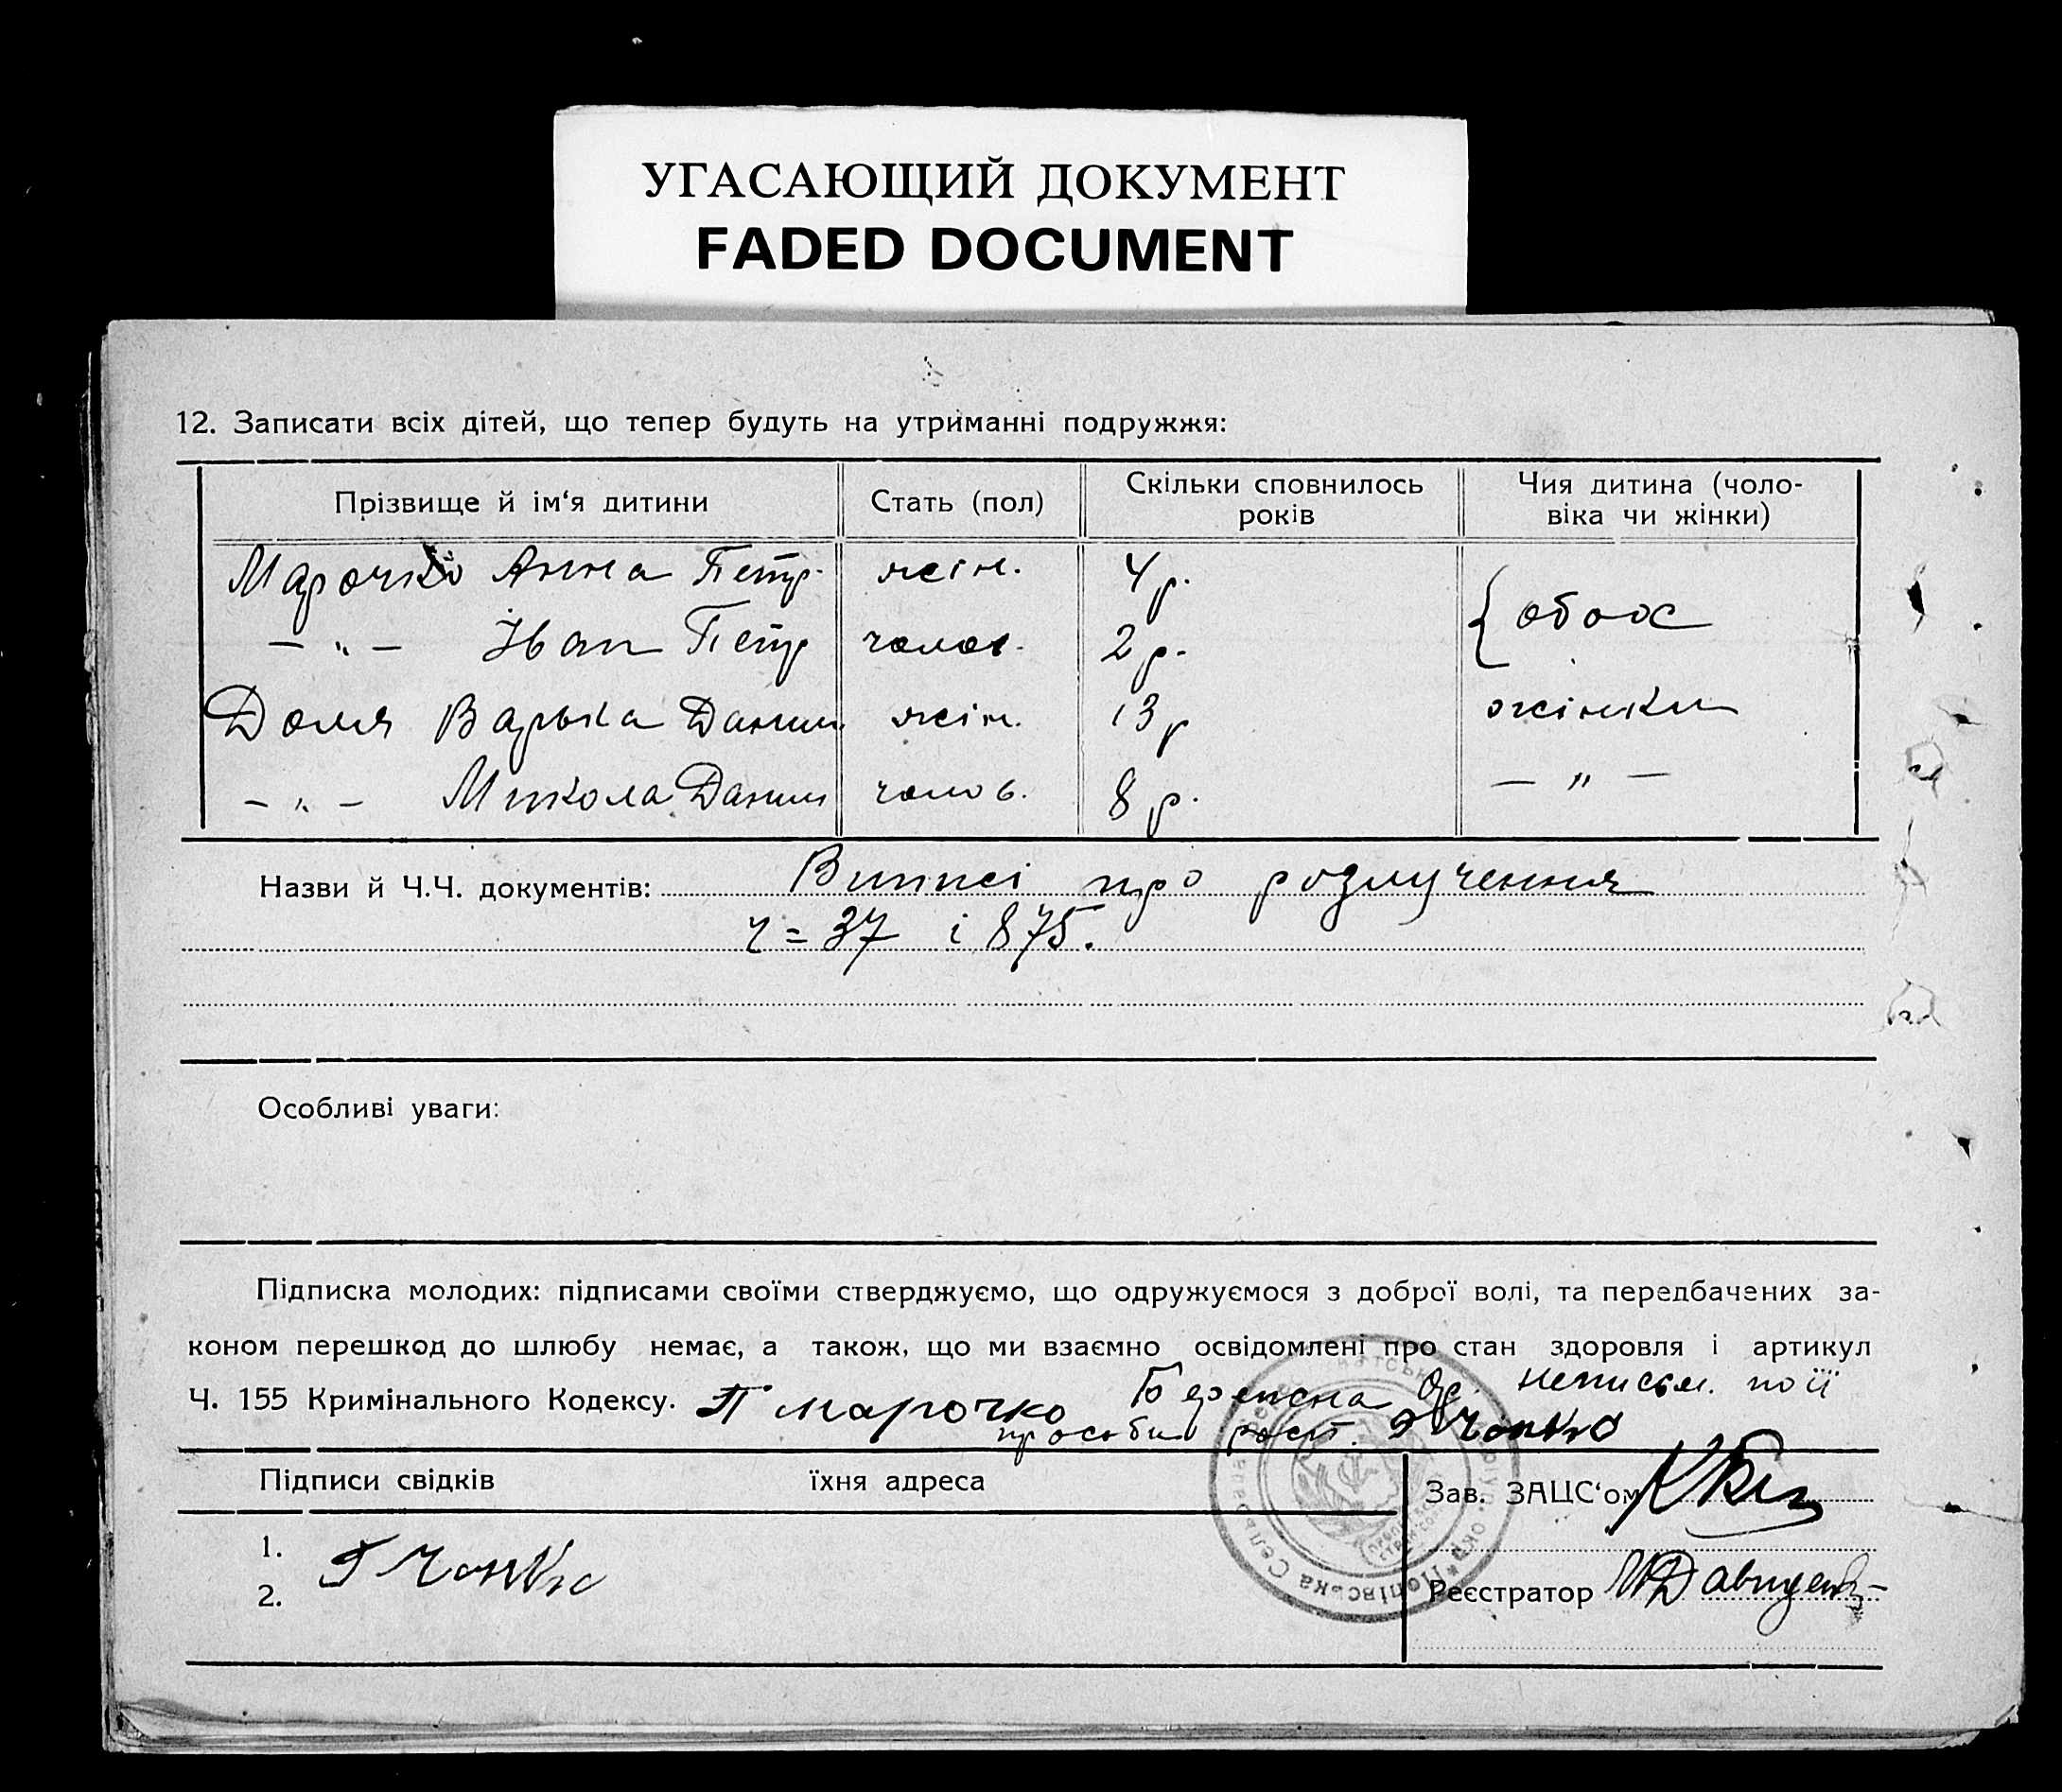 УГАСАЮЩИЙ ДОКУМЕНТ
FADED DOCUMENT
12. Записати всіх дітей, що тепер будуть на утриманні подружжя:
Прізвище й ім‘я дитини Стать (пол) Скільки сповнилось років Чия дитина (чоловіка чи жінки)
Марочко Анна Петр. жін. 4 р. { обох
— „ — Іван Петр чолов. 2 р.
Доля Варька Данил жін. 13 р жінки
— „ — Микола Данил чолов. 8 р. — „ —
Назви й Ч.Ч. документів: Виписі про розлучення
ч = 37 і 875.
Особливі уваги:
Підписка молодих: підписами своїми стверджуємо, що одружуємося з доброї волі, та передбачених за-
коном перешкод до шлюбу немає, а також, що ми взаємно освідомлені про стан здоровля і артикул
Ч. 155 Кримінального Кодексу. П Марочко неписьм. по її
просьби росп.
Підписи свідків їхня адреса
Зав. ЗАЦС‘ом
1.
2.
Реєстратор
Попівська Сель